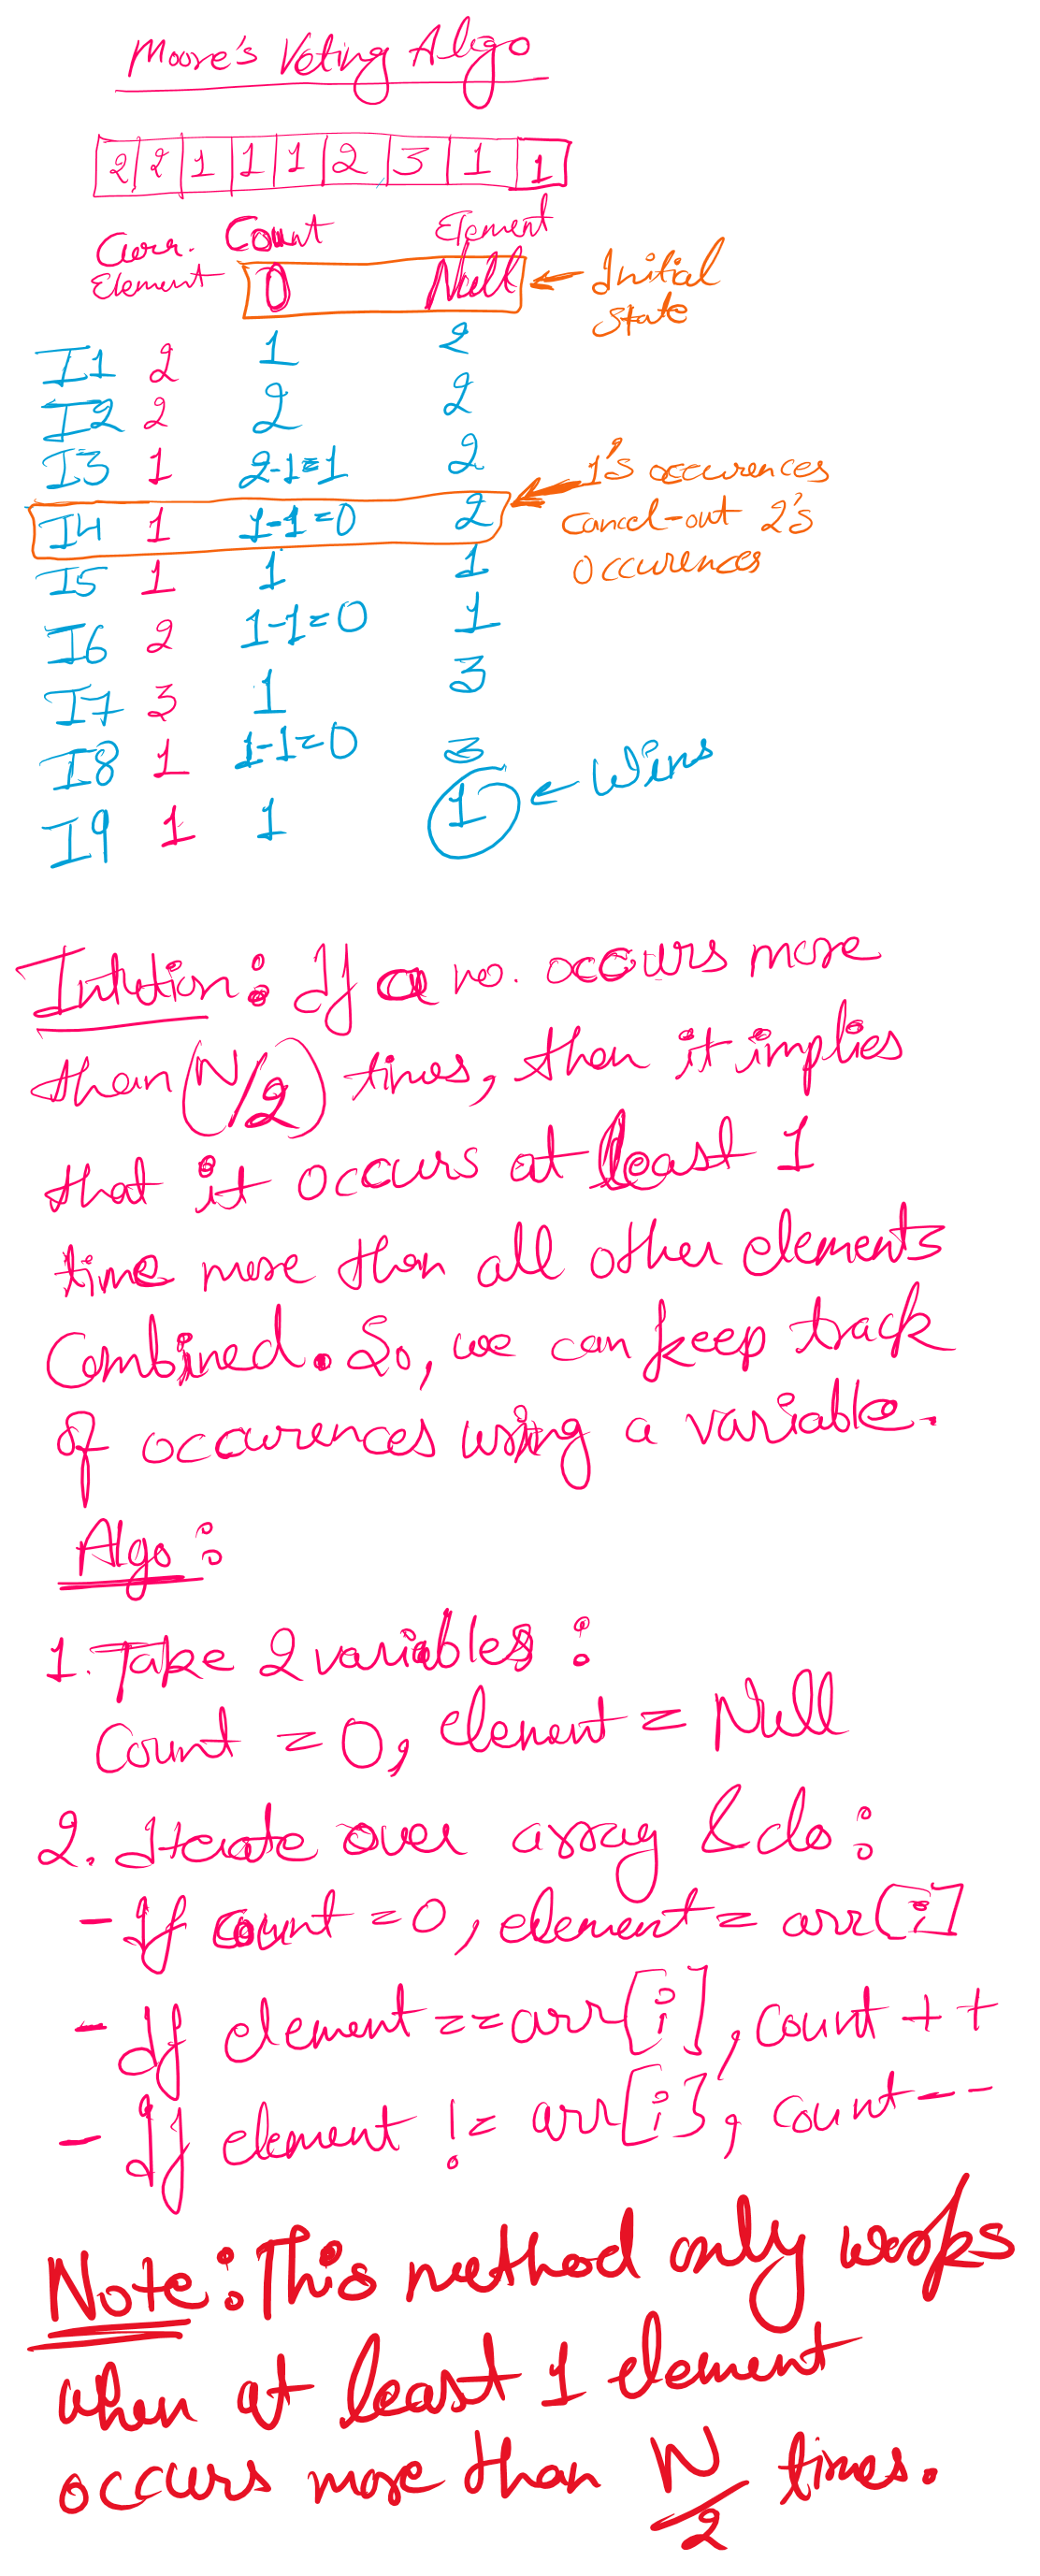 Moore's Voting Algo
2 2 1 1 1 2 3 1 1
Curr. Element Count Element
0 Null ← Initial state
I1 2 1 2
I2 2 2 2
I3 1 2-1=1 2
I4 1 1-1=0 2 ← 1's occurences
cancel-out 2's
occurences
I5 1 1 1
I6 2 1-1=0 1
I7 3 1 3
I8 1 1-1=0 3
I9 1 1 1 ← Wins
Intution: If a no. occurs more
than (N/2) times, then it implies
that it occurs at least 1
time more than all other elements
Combined. So, we can keep track
of occurences using a variable.
Algo:
1. Take 2 variables:
Count = 0, element = Null
2. Iterate over array & do:
- If count = 0, element = arr[i]
- If element == arr[i], count++
- If element != arr[i], count--
Note: This method only works
when at least 1 element
occurs more than N/2 times.